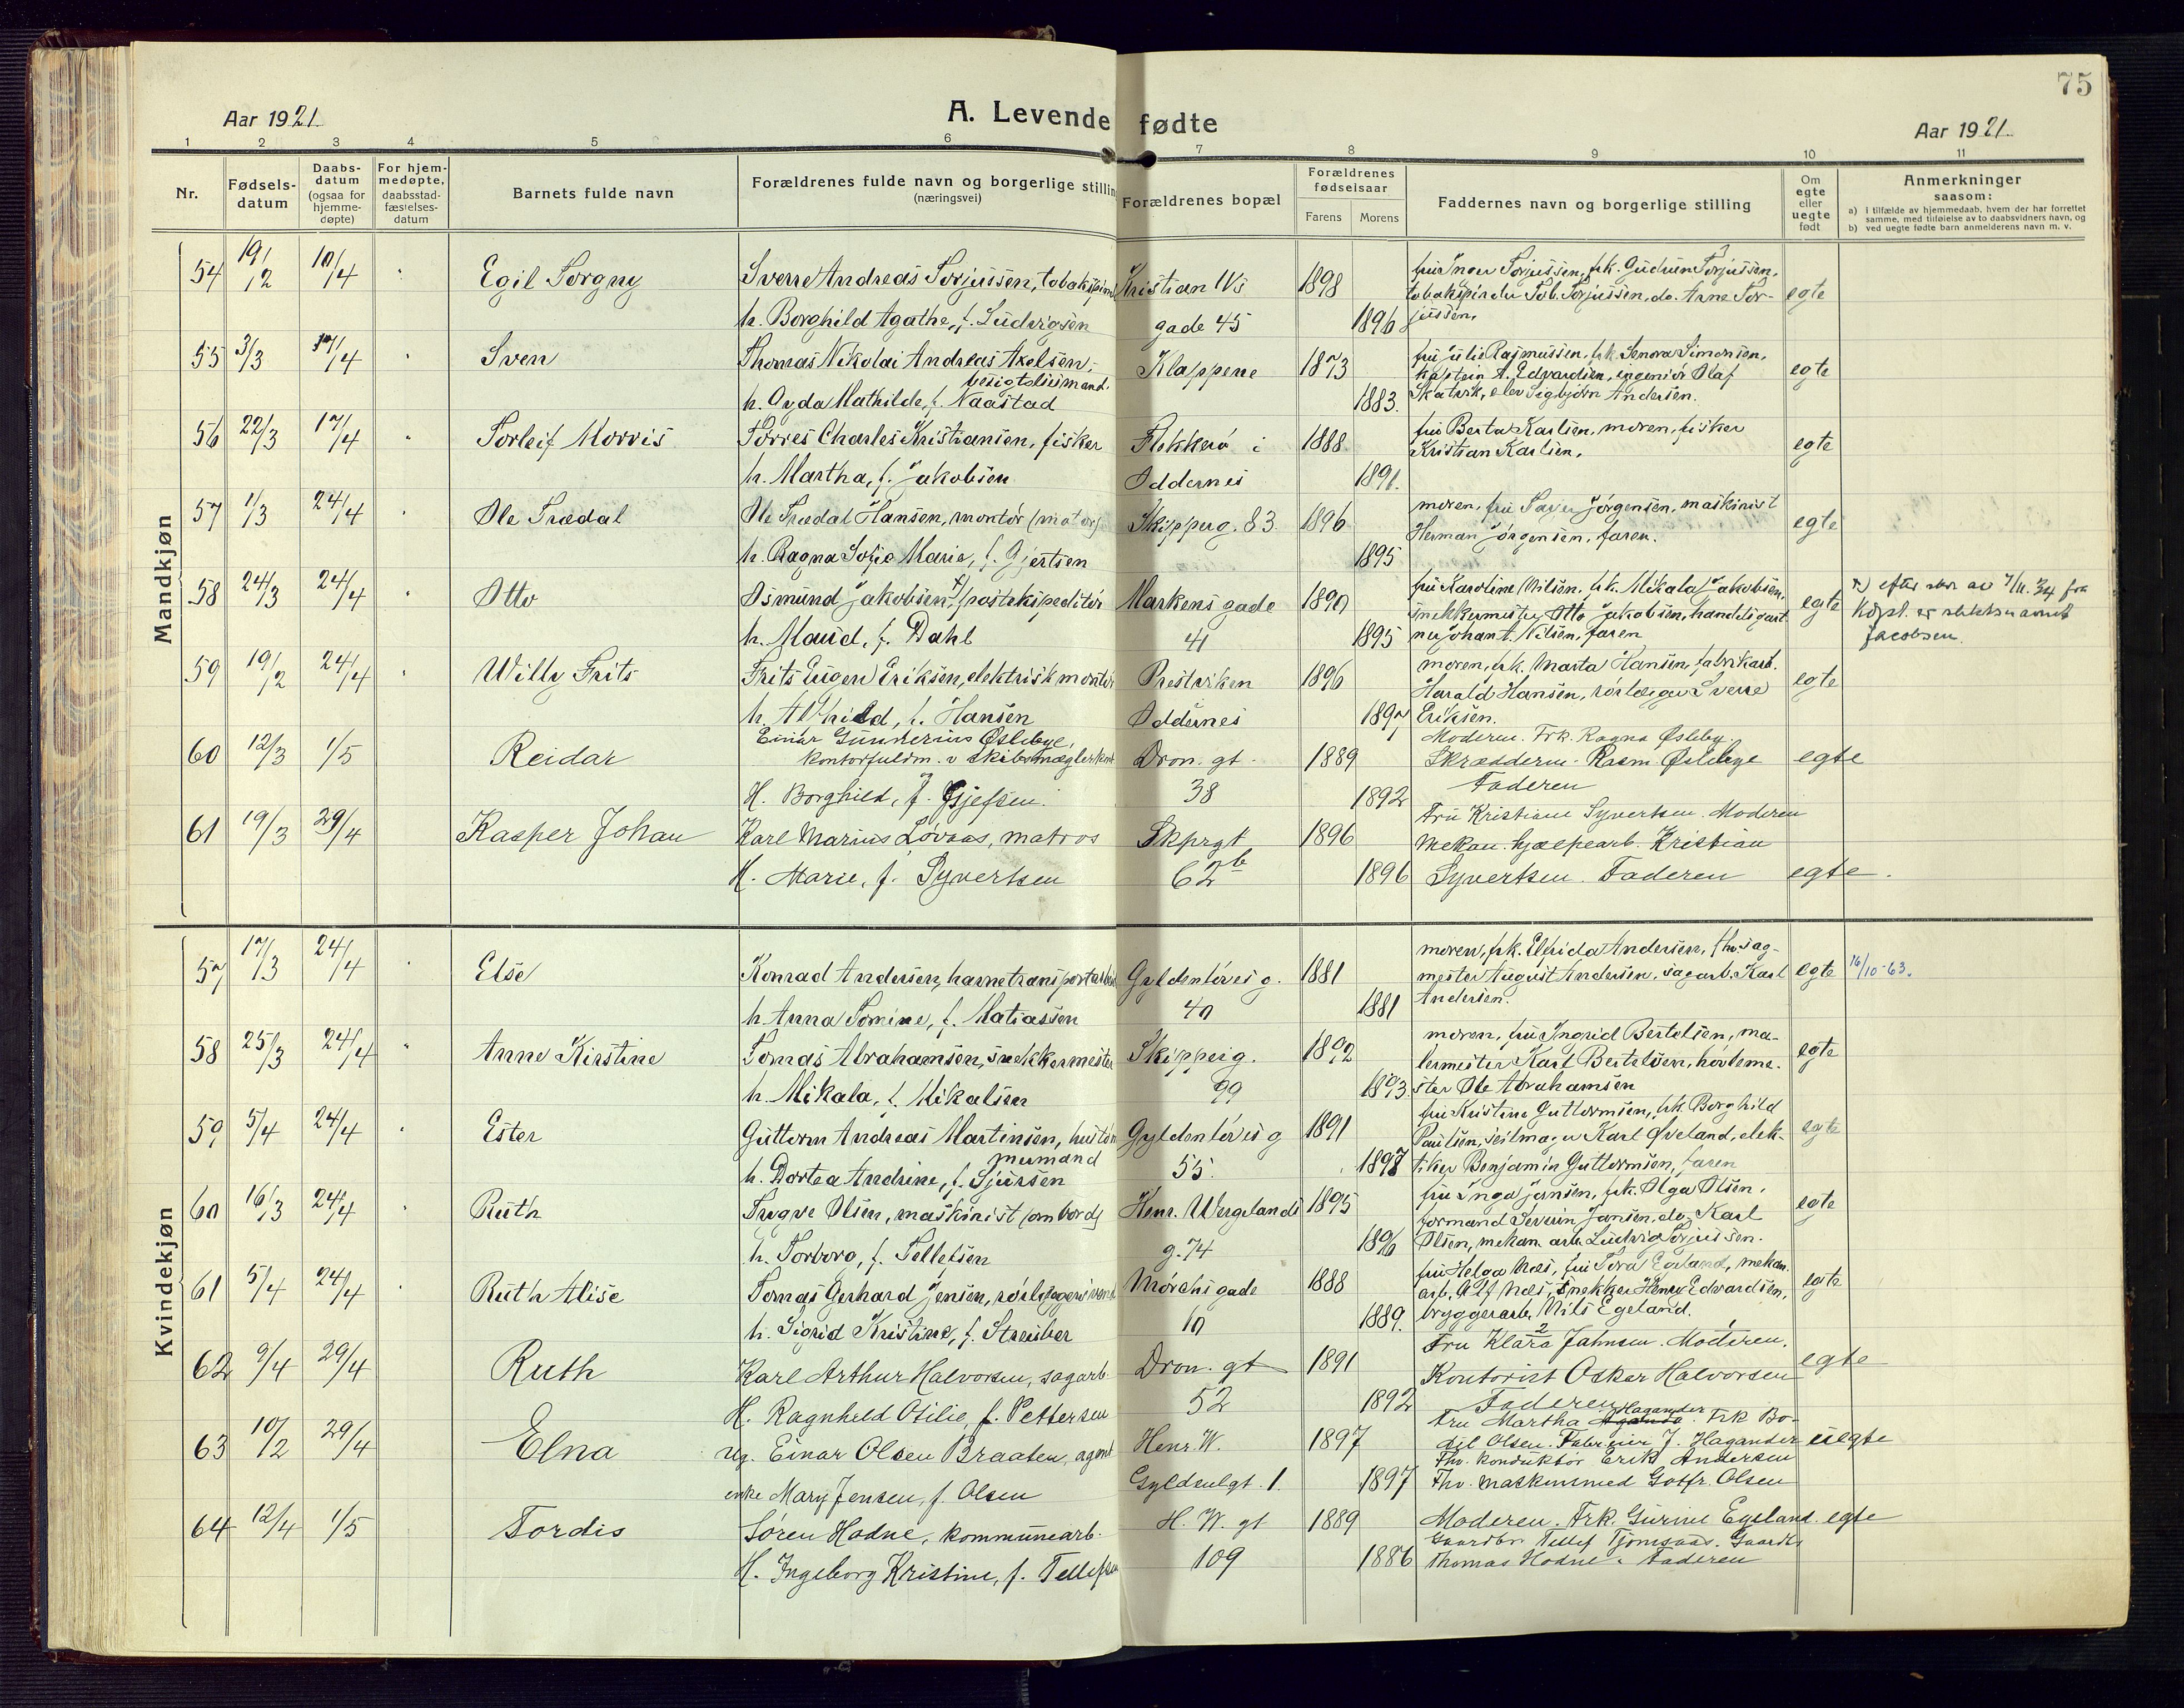 75
Aar 1921
A. Levende fødte
Aar 1921
1 2 3 4 5 6 7 8 9 10 11
Nr.
Fødsels-
datum
Daabs-
datum
(ogsaa for
hjemme-
døpte)
For hjem-
medøpte,
daabsstad-
fæstelses-
datum
Barnets fulde navn
Forældrenes fulde navn og borgerlige stilling
(næringsvei)
Forældrenes bopæl
Forældrenes
fødselsaar
Farens Morens
Faddernes navn og borgerlige stilling
Om
egte
eller
uegte
født
Anmerkninger
saasom:
a) i tilfælde av hjemmedaab, hvem der har forrettet
samme, med tilføielse av to daabsvidners navn, og
b) ved uegte fødte barn anmelderens navn m. v.
Mandkjøn
54 19/2 10/4 Egil Torgny Sverre Andreas Torjussen, tobakspind. Kristian IVs 1898 egte
h. Borghild Agathe, f. Ludvigsen gade 45 1896
fru Inger Torjussen, frk. Gudrun Torjussen,
tobakspinder Tob. Torjussen, do. Arne Tor-
jussen.
55 3/3 17/4 Sven Thomas Nikolai Andreas Axelsen, Klappene 1873 egte
besigtelsesmand.
h. Ovda Mathilde, f. Naastad 1883.
fru Julie Rasmussen, frk. Senora Simonsen,
kaptein A. Edvardsen, ingeniør Olaf
Skatvik, elev Sigbjørn Andersen.
56 22/3 17/4 Torleif Morris Torres Charles Kristiansen, fisker Flekkerø i 1888 egte
h. Martha, f. Jakobsen Oddernes 1891.
fru Berta Karlsen, moren, fisker
Kristian Karlsen.
57 1/3 24/4 Ole Trædal Ole Trædal Hansen, montør (motor) Skipperg. 83 1896 egte
h. Ragna Sofie Marie, f. Gjertsen 1895
moren, fru Jørgensen, maskinist
Herman Jørgensen, faren.
58 24/3 24/4 Otto Osmund Jakobsen x) postekspeditør Markens gade 1890 egte
h. Maud, f. Dahl 41 1895
fru Karoline Nilsen, frk. Mikala Jakobsen,
snekkermester Otto Jakobsen, handelsgart-
ner Johan t. Nilsen, faren
x) efter skr av 7/11. 34 fra
Kdpst. er slektsnavnet
Jacobsen.
59 19/2 24/4 Willy Frits Frits Eugen Eriksen, elektrisk montør Prestviken 1896 egte
h. Alfhild, f. Hansen Oddernes 1897
moren, frk. Marta Hansen, fabrikarb.
Harald Hansen, rørlægger Sverre
Eriksen.
60 12/3 1/5 Reidar Einar Gunnerius Øslebye, Dron. gt. 1889 egte
kontorfuldm. v skibsmæglerkont
H. Borghild, f. Gjefsen. 38 1892
Moderen. Frk. Ragna Øsleby.
Skrædderm. Rasm Øslebye
Faderen
61 19/3 29/4 Kasper Johan Karl Marius Løvaas, matros Skprgt 1896
H. Marie, f. Syvertsen 62b 1896 egte.
Fru Kristiane Syvertsen. Moderen
Mekan. hjælpearb. Kristian
Syvertsen. Faderen
Kvindekjøn
57 17/3 24/4 Else Konrad Andersen, havnetransportarbeid Gyldenløves g. 1881 egte 16/10-63.
h Anna Tomine, f. Matiassen 40 1881
moren, frk. Elfrida Andersen, fhv. sag-
mester August Andersen, sagarb. Karl
Andersen.
58 25/3 24/4 Anne Kirstine Tomas Abrahamsen, snekkermester Skipperg. 1892 egte
h. Mikala, f. Mikalsen 99 1893
moren, fru Ingrid Bertelsen, ma-
lermester Karl Bertelsen, havneme-
ster Ole Abrahamsen
59 5/4 24/4 Ester Guttorm Andreas Martinsen, Gyldenløves g 1891 egte
h. Dortea Andrine, f. Sjursen 55. 1897
fru Kristine Guttormsen, frk. Borghild
Paulsen, seilmager Karl Øveland, elek-
triker Benjamin Guttormsen, faren
60 16/3 24/4 Ruth Trygve Olsen, maskinist (ombord) Henr. Wergelands 1895 egte
h. Torborg, f. Tellefsen g. 74 1896
fru Inga Jansen, frk. Olga Olsen,
formand Severin Jansen, do. Karl
Olsen, mekan. arb. Ludvig Torjussen.
61 5/4 24/4 Ruth Alise Tomas Gerhard Jensen, rørlæggersvend Mørchs gade 1888 egte
h. Sigrid Kristine, f. Streuber 10 1889.
fru Helga Næs, fru Tora Egeland, mekan.
arb. Alf Næs, snekker Henry Edvardsen,
bryggerarb. Nils Egeland.
62 9/4 29/4 Ruth Karl Arthur Halvorsen, sagarb. Dron. gt 1891 egte
H. Ragnhild Otilie, f. Pettersen 52 1892
Fru Klara Jahnsen. Moderen.
Kontorist Oskar Halvorsen
Faderen
63 10/2 29/4 Elna Ug. Einar Olsen Braaten, agent Henr. W. 1897 uegte
enke Mary Jensen, f. Olsen Gyldenlgt. 1. 1897
Fru Martha Hagander. Frk Bo-
dil Olsen. J. Hagander
Fhv. konduktør Erik Andersen
Fhv. maskinmed Gotfr. Olsen
64 12/4 1/5 Tordis Søren Hodne, kommunearb. H. W. gt 1889 egte
H. Ingeborg Kristine, f. Tellefsen 109 1886
Moderen. Frk. Gurine Egeland.
Gaardbr. Tellef Tjomsaas. Gaardb.
Thomas Hodne. Faderen